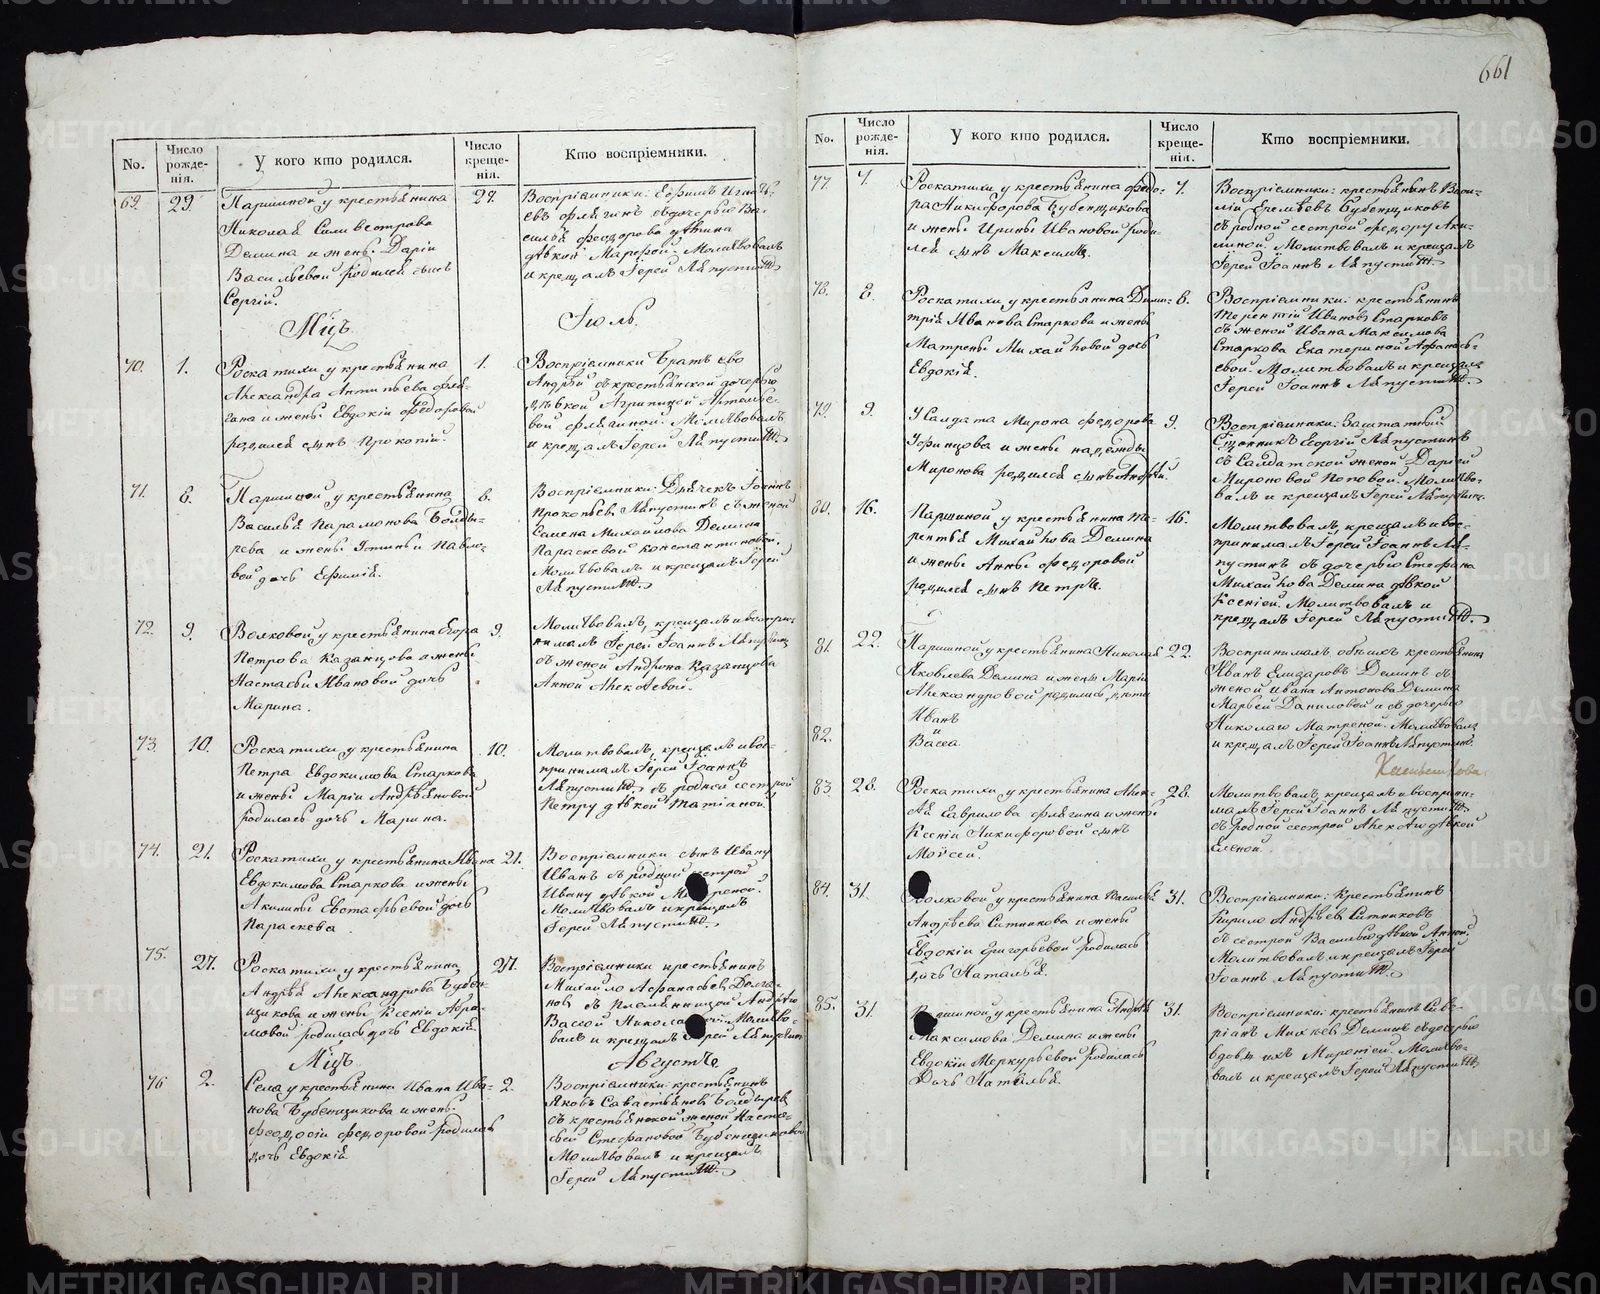 661
No.
Число рожде-нія.
У кого кто родился.
Число креще-нія.
Кто воспріемники.
69.
29.
Паршиной у крестьянина
Николая Силивестрова
Демина и жены Даріи
Васильевой родился сынъ
Сергій.
29.
Воспріемники: Ефимъ Игнать-
Молитвовалъ
и крещалъ Іерей Ляпустинъ
Мцъ
Іюль.
70.
1.
Роскатихи у крестьянина
Александра Антипьева
и жены Евдокіи Федоровой
родился сынъ Прокопій.
1.
Воспріемники братъ его
Андрей съ крестьянской дочерью
дѣвкой Агрипиной Артемье-
вой Молитвовалъ
и крещалъ Іерей Ляпустинъ
71.
8.
Паршиной у крестьянина
Василья Парамонова Болды-
рева и жены Устиньи Павло-
вой дочь Ефимія.
8.
Воспріемники: Дьячекъ Іоаннъ
Прокопьевъ Ляпустинъ съ женой
Семена Михайлова Демина
Параскевой Константиновой.
Молитвовалъ и крещалъ Іерей
Ляпустинъ
72.
9.
Волковой у крестьянина Егора
Петрова Казанцова и жены
Настасьи Ивановой дочь
Марина.
9.
Молитвовалъ, крещалъ и воспри-
нималъ Іерей Іоаннъ Ляпустинъ
съ женой Андрона Казанцова
Анной Алексѣевой.
73.
10.
Роскатихи у крестьянина
Петра Евдокимова Старкова
и жены Маріи Андреяновой
родилась дочь Марина.
10.
Молитвовалъ, крещалъ и вос-
принималъ Іерей Іоаннъ
Ляпустинъ съ родной сестрой
Петру дѣвкой Татіаной.
74.
21.
Роскатихи у крестьянина Ивана
Евдокимова Старкова и жены
Акилины Евстафьевой дочь
Параскева
21.
Воспріемники сынъ Ивану
Иванъ съ родной сестрой
Ивану дѣвкой
Молитвовалъ и крещалъ
Іерей Ляпустинъ
75.
27.
Роскатихи у крестьянина
Андрея Александрова Бубен-
щикова и жены Ксеніи Абра-
мовой родилась дочь Евдокія.
27.
Воспріемники крестьянинъ
Михайло Афанасьевъ Долга-
новъ съ племянницей Андрею
Вассой Молитво-
валъ и крещалъ Іерей Ляпустинъ
Мцъ
Августъ.
76
2.
Села у крестьянина Ивана Ива-
нова Бубенщикова и жены
Феодосіи Федоровой родилась
дочь Евдокія.
2.
Воспріемники: крестьянинъ
Яковъ Савастьяновъ Болдыревъ
съ крестьянской женой Наста-
сьей Стефановой Бубенщиковой
Молитвовалъ и крещалъ
Іерей Ляпустинъ
No.
Число рожде-нія.
У кого кто родился.
Число креще-нія.
Кто воспріемники.
77.
7.
Роскатихи у крестьянина Федо-
ра Никифорова Бубенщикова
и жены Ирины Ивановой роди-
лся сынъ Максимъ.
7.
Воспріемники: крестьянинъ Васи-
лій Еремѣевъ Бубенщиковъ
съ родной сестрой Федору Аки-
линой. Молитвовалъ и крещалъ
Іерей Іоаннъ Ляпустинъ.
78.
8.
Роскатихи у крестьянина Дими-
трія Иванова Старкова и жены
Матрены Михайловой дочь
Евдокія.
8.
Воспріемники: крестьянинъ
Терентій Ивановъ Старковъ
съ женой Ивана Максимова
Старкова Екатериной Афанась-
евой. Молитвовалъ и крещалъ
Іерей Іоаннъ Ляпустинъ.
79.
9.
У Салдата Мирона Федорова
и жены Надежды
Мироновой родился сынъ Андрей.
9.
Воспріемники: Заштатный
Сщенникъ Георгій Ляпустинъ
съ Салдатской женой Даріей
Мироновой Поповой. Молитво-
валъ и крещалъ Іерей Ляпустинъ.
80.
16.
Паршиной у крестьянина Те-
рентья Михайлова Демина
и жены Анны Федоровой
родился сынъ Петръ.
16.
Молитвовалъ, крещалъ и вос-
принималъ Іерей Іоаннъ Ля-
пустинъ съ дочерью Стефана
Михайлова Демина дѣвкой
Ксеніей. Молитвовалъ и
крещалъ Іерей Ляпустинъ.
81.
22.
Паршиной у крестьянина Николая
Яковлева Демина и жены Маріи
Александровой родились дѣти
Иванъ
и
82.
Васса.
22.
Воспринималъ обоихъ крестьянинъ
Иванъ Елизаровъ Деминъ съ
женой Ивана Антонова Демина
Марьей Даниловой и съ дочерью
Николаю Матреной. Молитвовалъ
и крещалъ Іерей Іоаннъ Ляпустинъ.
83.
28.
Роскатихи у крестьянина Алек-
сѣя Гаврилова и жены
Ксеніи Никифоровой сынъ
Моѵсей.
28.
Молитвовалъ, крещалъ и воспри-
малъ Іерей Іоаннъ Ляпустинъ
съ родной сестрой Алексѣю дѣвкой
Еленой.
84.
31.
Волковой у крестьянина Василья
Андрѣева Ситникова и жены
Евдокіи Григорьевой родилась
дочь Наталья.
31.
Воспріемники: Крестьянинъ
Кирило Андрѣевъ Ситниковъ
съ сестрой Василью дѣвкой Анной.
Молитвовалъ и крещалъ Іерей
Іоаннъ Ляпустинъ
85.
31.
Паршиной у крестьянина Андрея
Максимова Демина и жены
Евдокіи Меркурьевой родилась
Дочь Наталья.
31.
Воспріемники: крестьянинъ Севе-
ріанъ Деминъ
Молитво-
валъ и крещалъ Іерей Ляпустинъ
METRIKI.GASO-URAL.RU